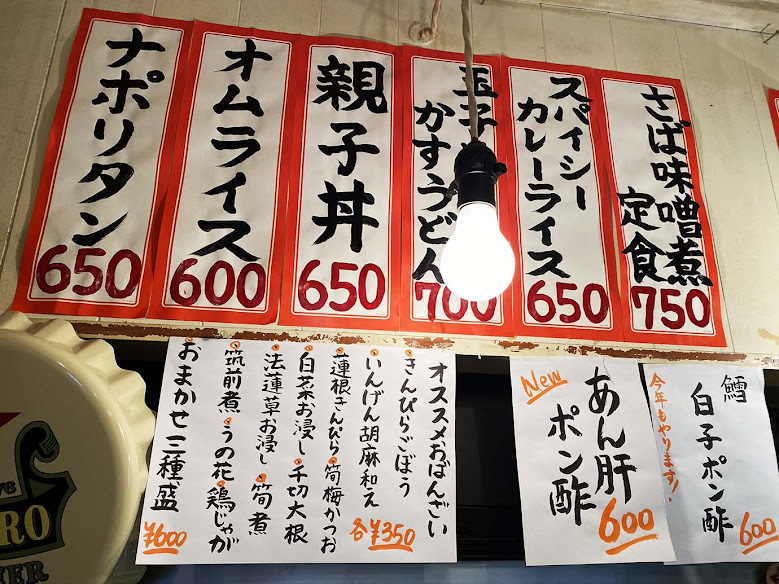 さば味噌煮
定食
750
スパイシー
カレーライス
650
玉子
かすうどん
700
親子丼
650
オムライス
600
ナポリタン
650
オススメおばんざい
・きんぴらごぼう
・いんげん胡麻和え
・蓮根きんぴら・筍梅かつお
・白菜お浸し・千切大根
・法蓮草お浸し・筍煮
・筑前煮・うの花・鶏じゃが
各¥350
・おまかせ三種盛
¥600
New
あん肝
ポン酢
600
鱈
白子ポン酢
今年もやります!
600
RO